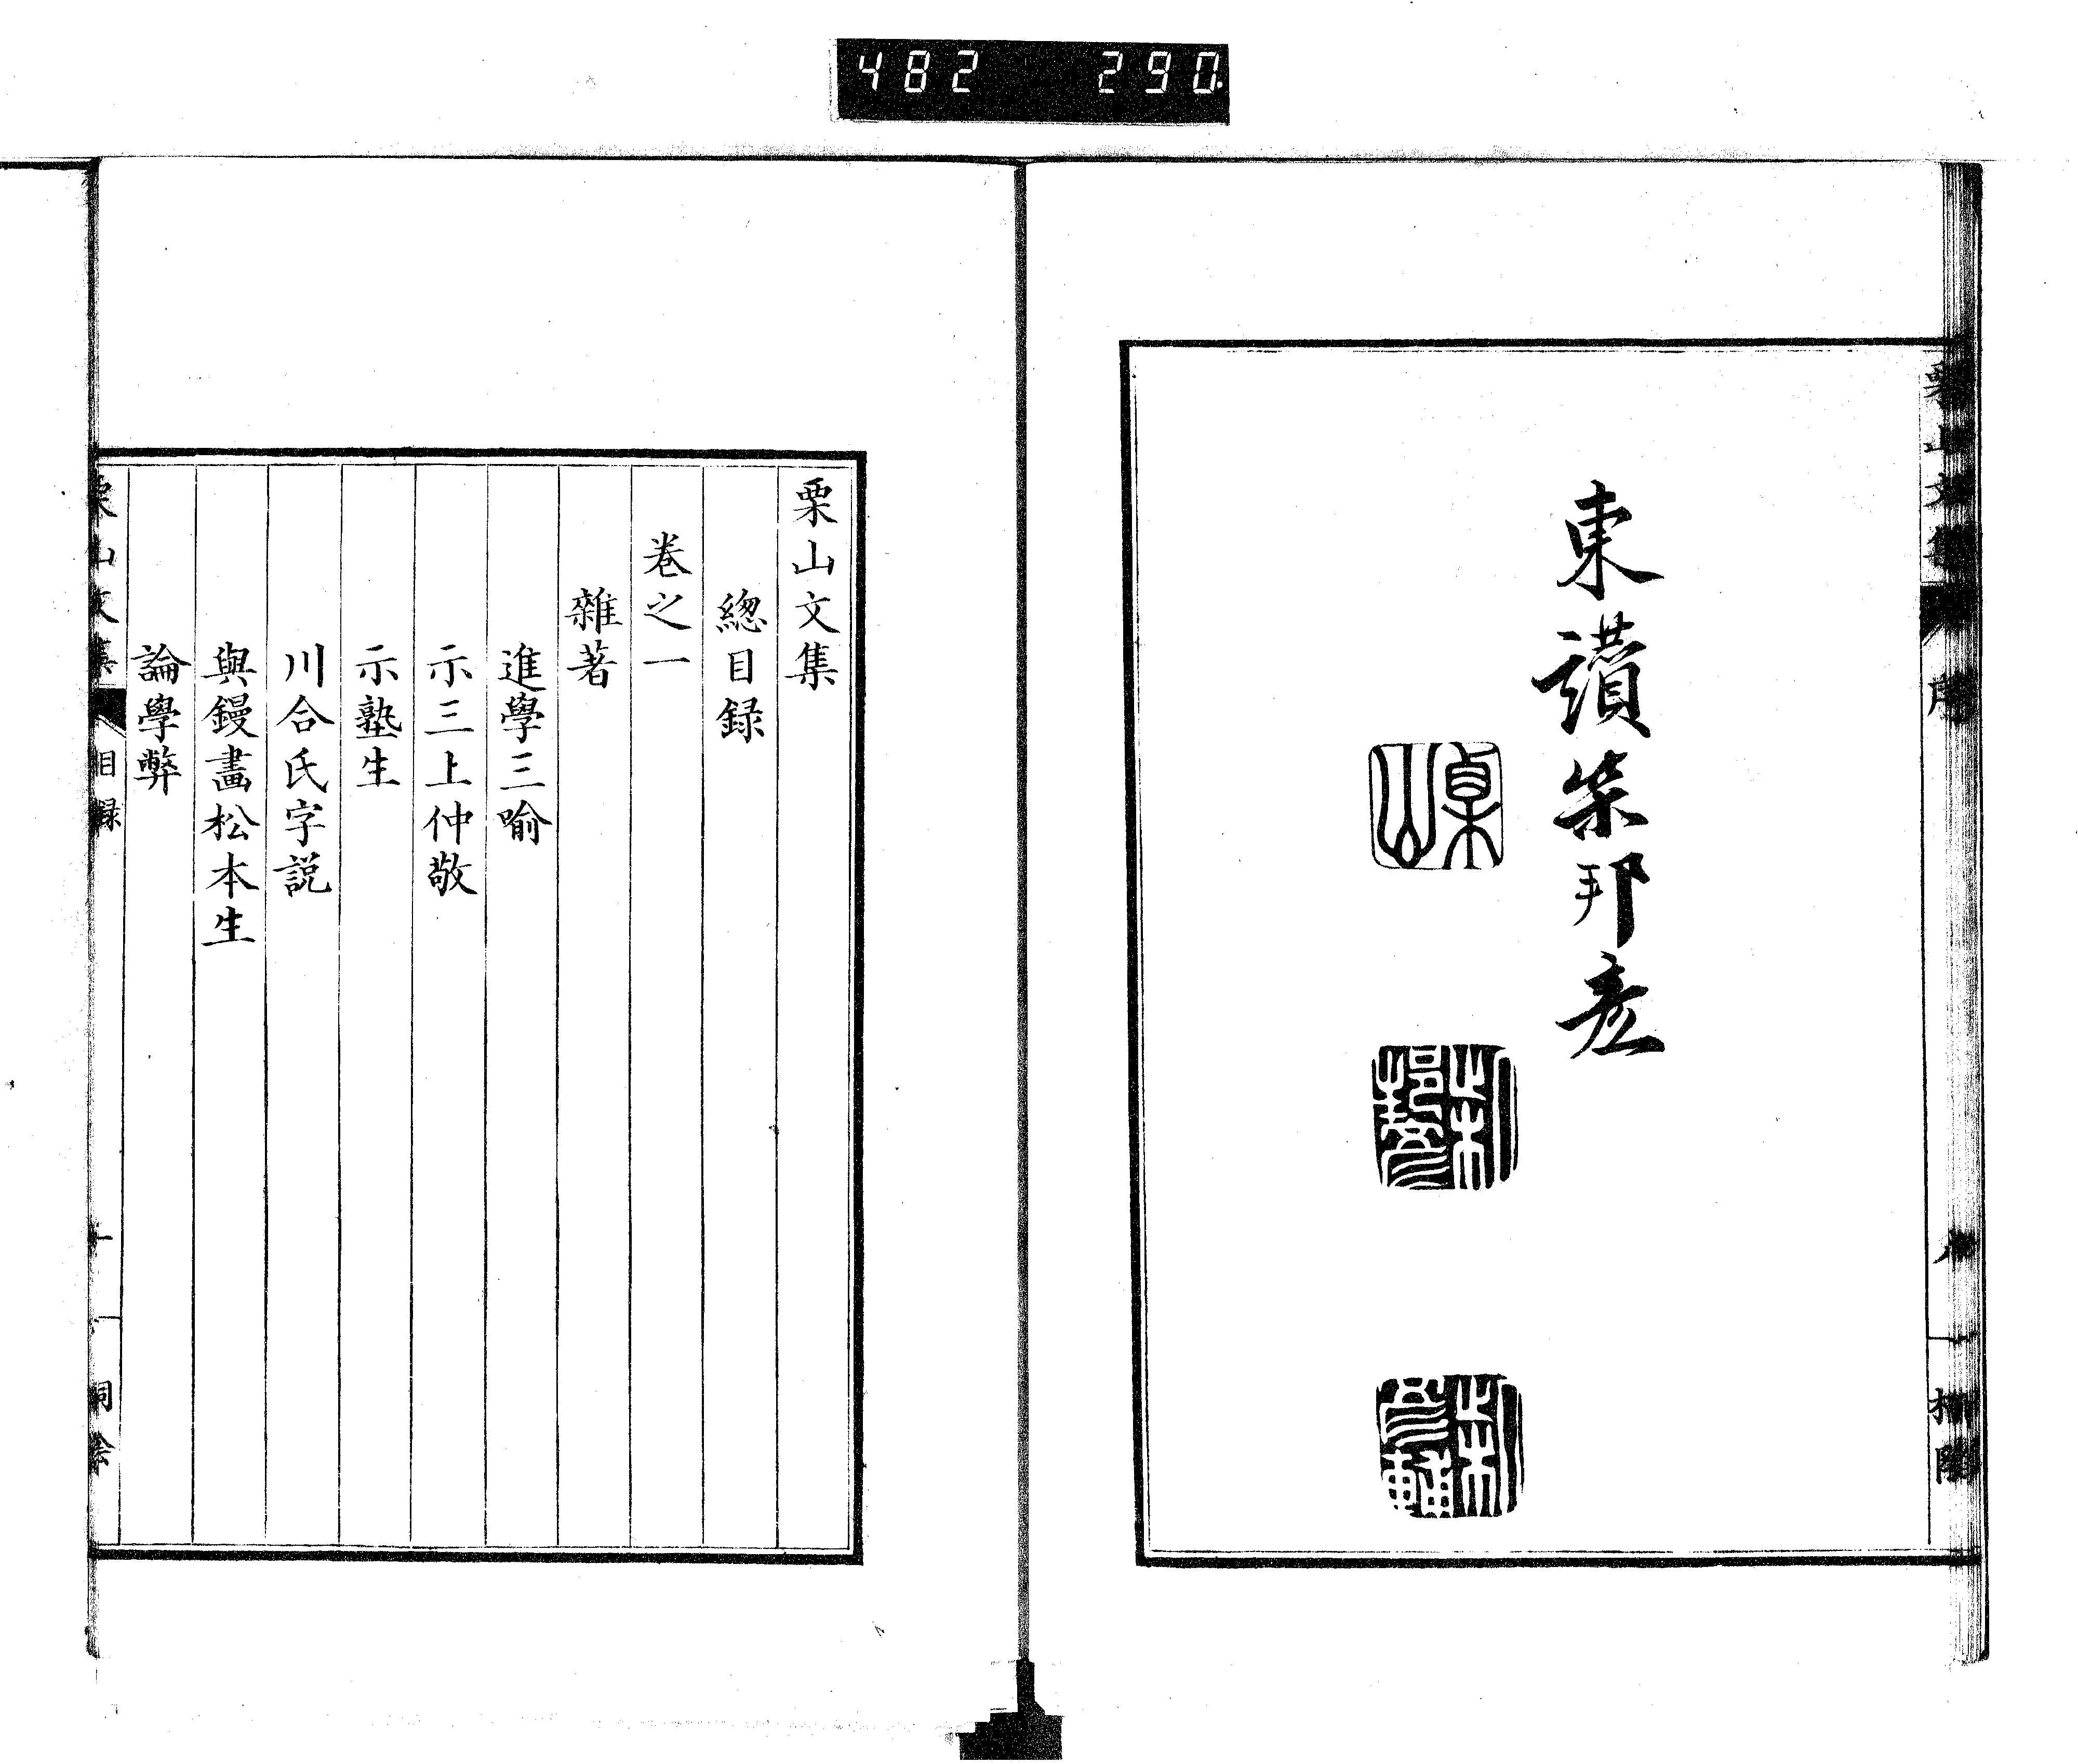 482 290.
東讃柴邦彦
栗山
栗山文集
總目録
巻之一
雜著
進學三喻
示三上仲敬
示塾生
川合氏字説
與鏝畫松本生
論學弊
栗山文集
目録